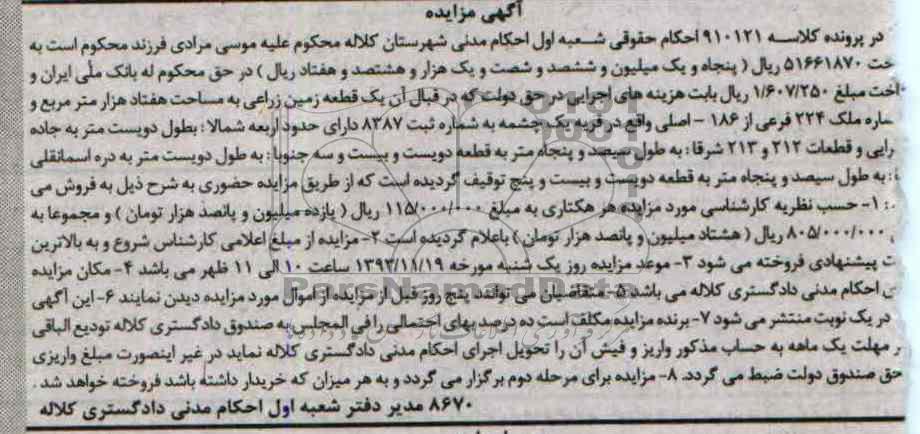 آگهی مزایده
در پرونده کلاسه ۹۱۰۱۲۱ احکام حقوقی شعبه اول احکام مدنی شهرستان کلاله محکوم علیه موسی مرادی فرزند محکوم است به
خت ۵۱۶۶۱۸۷۰ ریال ( پنجاه و یک میلیون و ششصد و شصت و یک هزار و هشتصد و هفتاد ریال ) در حق محکوم له بانک ملی ایران و
اخت مبلغ ۱/۶۰۷/۲۵۰ ریال بابت هزینه های اجرایی در حق دولت که در قبال آن یک قطعه زمین زراعی به مساحت هفتاد هزار متر مربع و
ماره ملک ۲۲۴ فرعی از ۱۸۶ - اصلی واقع در قریه یک چشمه به شماره ثبت ۸۲۸۷ دارای حدود اربعه شمالا : بطول دویست متر به جاده
رایی و قطعات ۲۱۲ و ۲۱۳ شرقا : به طول سیصد و پنجاه متر به قطعه دویست و بیست و سه جنوبا : به طول دویست متر به دره اسمانقلی
ا : به طول سیصد و پنجاه متر به قطعه دویست و بیست و پنج توقیف گردیده است که از طریق مزایده حضوری به شرح ذیل به فروش می
: ۱- حسب نظریه کارشناسی مورد مزایده هر هکتاری به مبلغ ۱۱۵/۰۰۰/۰۰۰ ریال ( یازده میلیون و پانصد هزار تومان ) و مجموعا به
۸۰۵/۰۰۰/۰۰۰ ریال ( هشتاد میلیون و پانصد هزار تومان ) باعلام گردیده است ۲- مزایده از مبلغ اعلامی کارشناس شروع و به بالاترین
ت پیشنهادی فروخته می شود ۳- موعد مزایده روز یک شنبه مورخه ۱۳۹۳/۱۱/۱۹ ساعت ۱۰ الی ۱۱ ظهر می باشد ۴- مکان مزایده
ی احکام مدنی دادگستری کلاله می باشد ۵- متقاضیان می توانند پنج روز قبل از مزایده از اموال مورد مزایده دیدن نمایند ۶- این آگهی
در یک نوبت منتشر می شود ۷- برنده مزایده مکلف است ده درصد بهای احتمالی را فی المجلس به صندوق دادگستری کلاله تودیع الباقی
ر مهلت یک ماهه به حساب مذکور واریز و فیش آن را تحویل اجرای احکام مدنی دادگستری کلاله نماید در غیر اینصورت مبلغ واریزی
حق صندوق دولت ضبط می گردد. ۸- مزایده برای مرحله دوم برگزار می گردد و به هر میزان که خریدار داشته باشد فروخته خواهد شد .
۸۶۷۰ مدیر دفتر شعبه اول احکام مدنی دادگستری کلاله
ParsNamadData